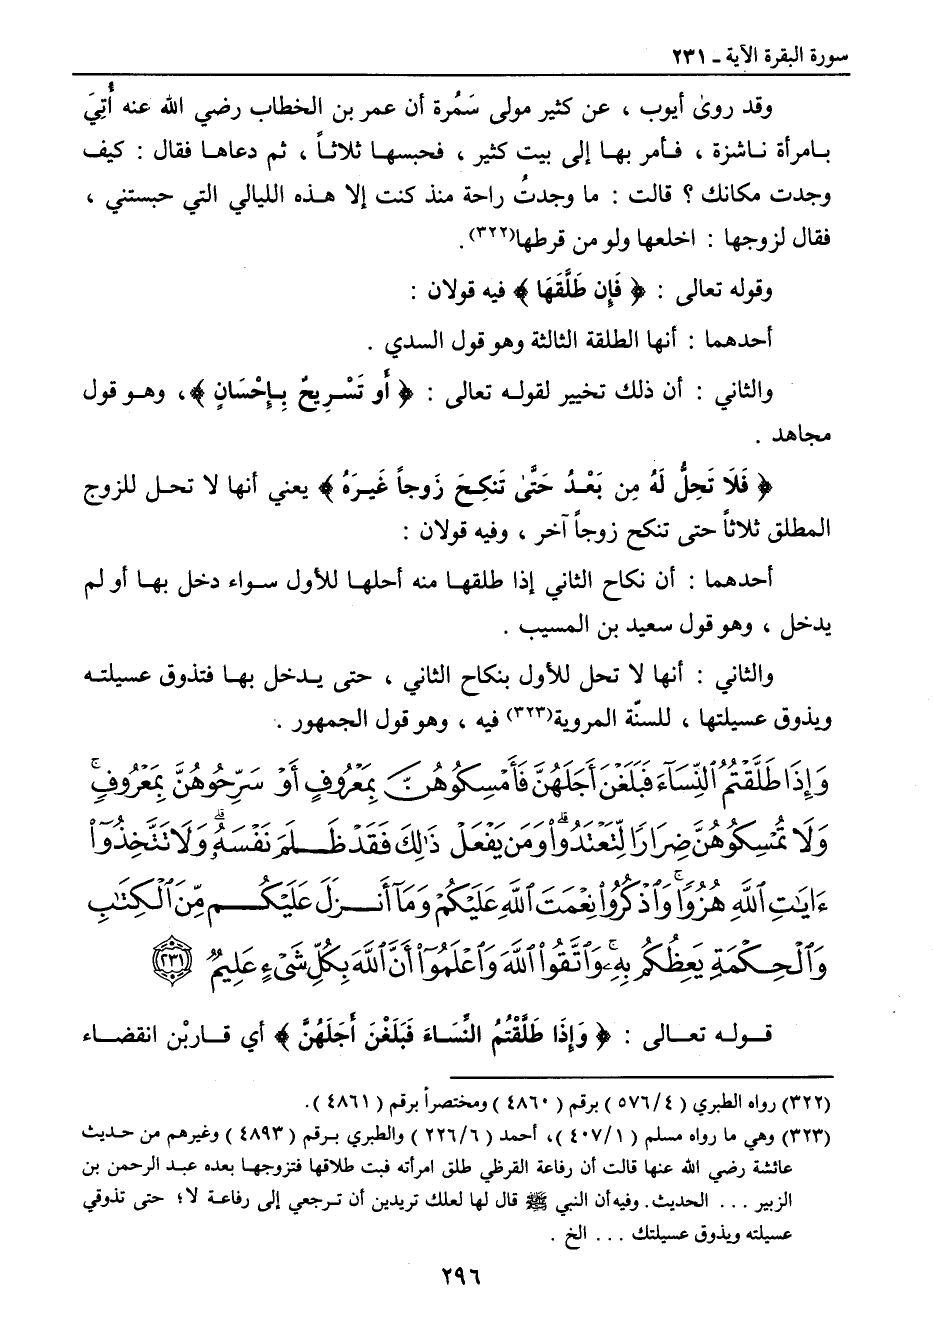 سورة البقرة الآية ـ ٢٣١
وقد روىٰ أيوب ، عن كثير مولى سَمُرة أن عمر بن الخطاب رضي الله عنه أُتِيَ
بامرأة ناشزة ، فأمر بها إلى بيت كثير ، فحبسها ثلاثاً ، ثم دعاها فقال : كيف
وجدت مكانك ؟ قالت : ما وجدتُ راحة منذ كنت إلا هذه الليالي التي حبستني ،
فقال لزوجها : اخلعها ولو من قرطها(٣٢٢) .
وقوله تعالى : ﴿ فَإِن طَلَّقَهَا ﴾ فيه قولان :
أحدهما : أنها الطلقة الثالثة وهو قول السدي .
والثاني : أن ذلك تخيير لقوله تعالى : ﴿ أَو تَسْرِيحٌ بِإِحْسَانٍ ﴾، وهو قول
مجاهد .
﴿ فَلَا تَحِلُّ لَهُ مِن بَعْدُ حَتَّىٰ تَنكِحَ زَوجاً غَيرَهُ ﴾ يعني أنها لا تحل للزوج
المطلق ثلاثاً حتى تنكح زوجاً آخر ، وفيه قولان :
أحدهما : أن نكاح الثاني إذا طلقها منه أحلها للأول سواء دخل بها أو لم
يدخل ، وهو قول سعيد بن المسيب .
والثاني : أنها لا تحل للأول بنكاح الثاني ، حتى يدخل بها فتذوق عسيلته
ويذوق عسيلتها ، للسنّة المروية(٣٢٣) فيه ، وهو قول الجمهور .
وَإِذَا طَلَّقْتُمُ ٱلنِّسَآءَ فَبَلَغْنَ أَجَلَهُنَّ فَأَمْسِكُوهُنَّ بِمَعْرُوفٍ أَوْ سَرِّحُوهُنَّ بِمَعْرُوفٍ ۚ
وَلَا تُمْسِكُوهُنَّ ضِرَارًا لِّتَعْتَدُوا۟ ۚ وَمَن يَفْعَلْ ذَٰلِكَ فَقَدْ ظَلَمَ نَفْسَهُۥ ۚ وَلَا تَتَّخِذُوٓا۟
ءَايَٰتِ ٱللَّهِ هُزُوًا ۚ وَٱذْكُرُوا۟ نِعْمَتَ ٱللَّهِ عَلَيْكُمْ وَمَآ أَنزَلَ عَلَيْكُم مِّنَ ٱلْكِتَٰبِ
وَٱلْحِكْمَةِ يَعِظُكُم بِهِۦ ۚ وَٱتَّقُوا۟ ٱللَّهَ وَٱعْلَمُوٓا۟ أَنَّ ٱللَّهَ بِكُلِّ شَىْءٍ عَلِيمٌ ﴿٢٣١﴾
قوله تعالى : ﴿ وَإِذَا طَلَّقْتُمُ النِّسَاءَ فَبَلَغْنَ أَجَلَهُنَّ ﴾ أي قاربْن انقضاء
(٣٢٢) رواه الطبري ( ٥٧٦/٤ ) برقم ( ٤٨٦٠ ) ومختصراً برقم ( ٤٨٦١ ).
(٣٢٣) وهي ما رواه مسلم ( ٤٠٧/١ )، أحمد ( ٢٢٦/٦ ) والطبري برقم ( ٤٨٩٣ ) وغيرهم من حديث
عائشة رضي الله عنها قالت أن رفاعة القرظي طلق امرأته فبت طلاقها فتزوجها بعده عبد الرحمن بن
الزبير ... الحديث. وفيه أن النبي ﷺ قال لها لعلك تريدين أن ترجعي إلى رفاعة لا؛ حتى تذوقي
عسيلته ويذوق عسيلتك ... الخ .
٢٩٦